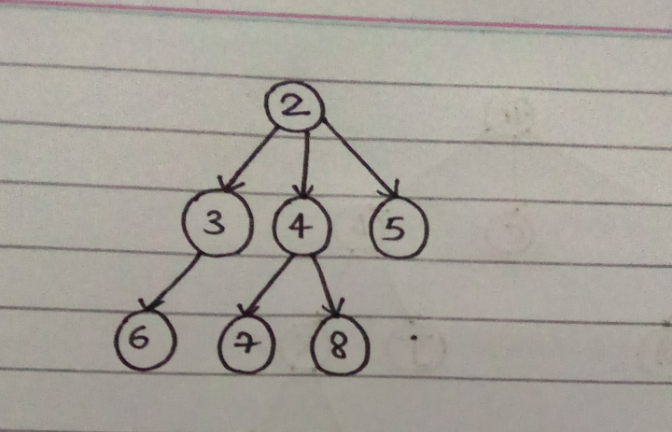 2
3 4 5
6 7 8